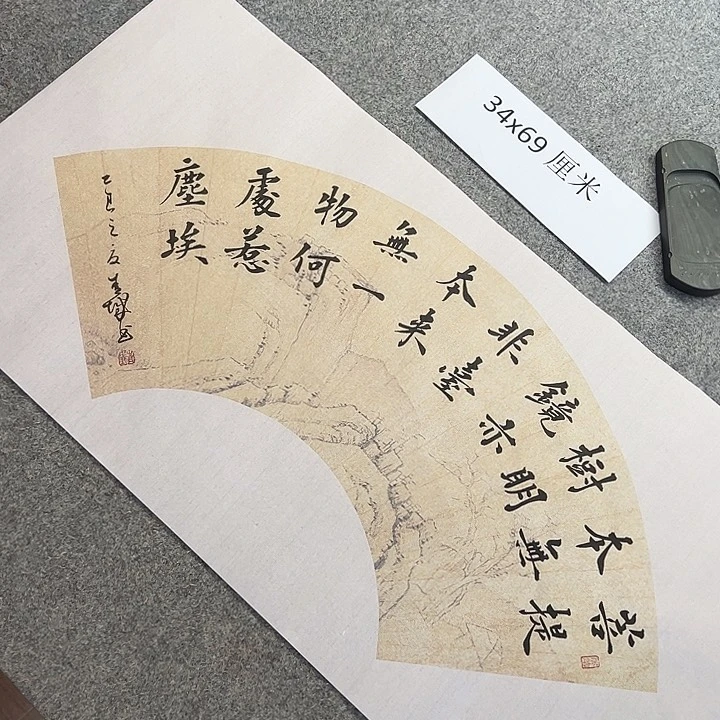 菩提
本無
樹明
鏡亦
非臺
本来
無一
物何
處惹
塵埃
乙巳之夏
34x69 厘米